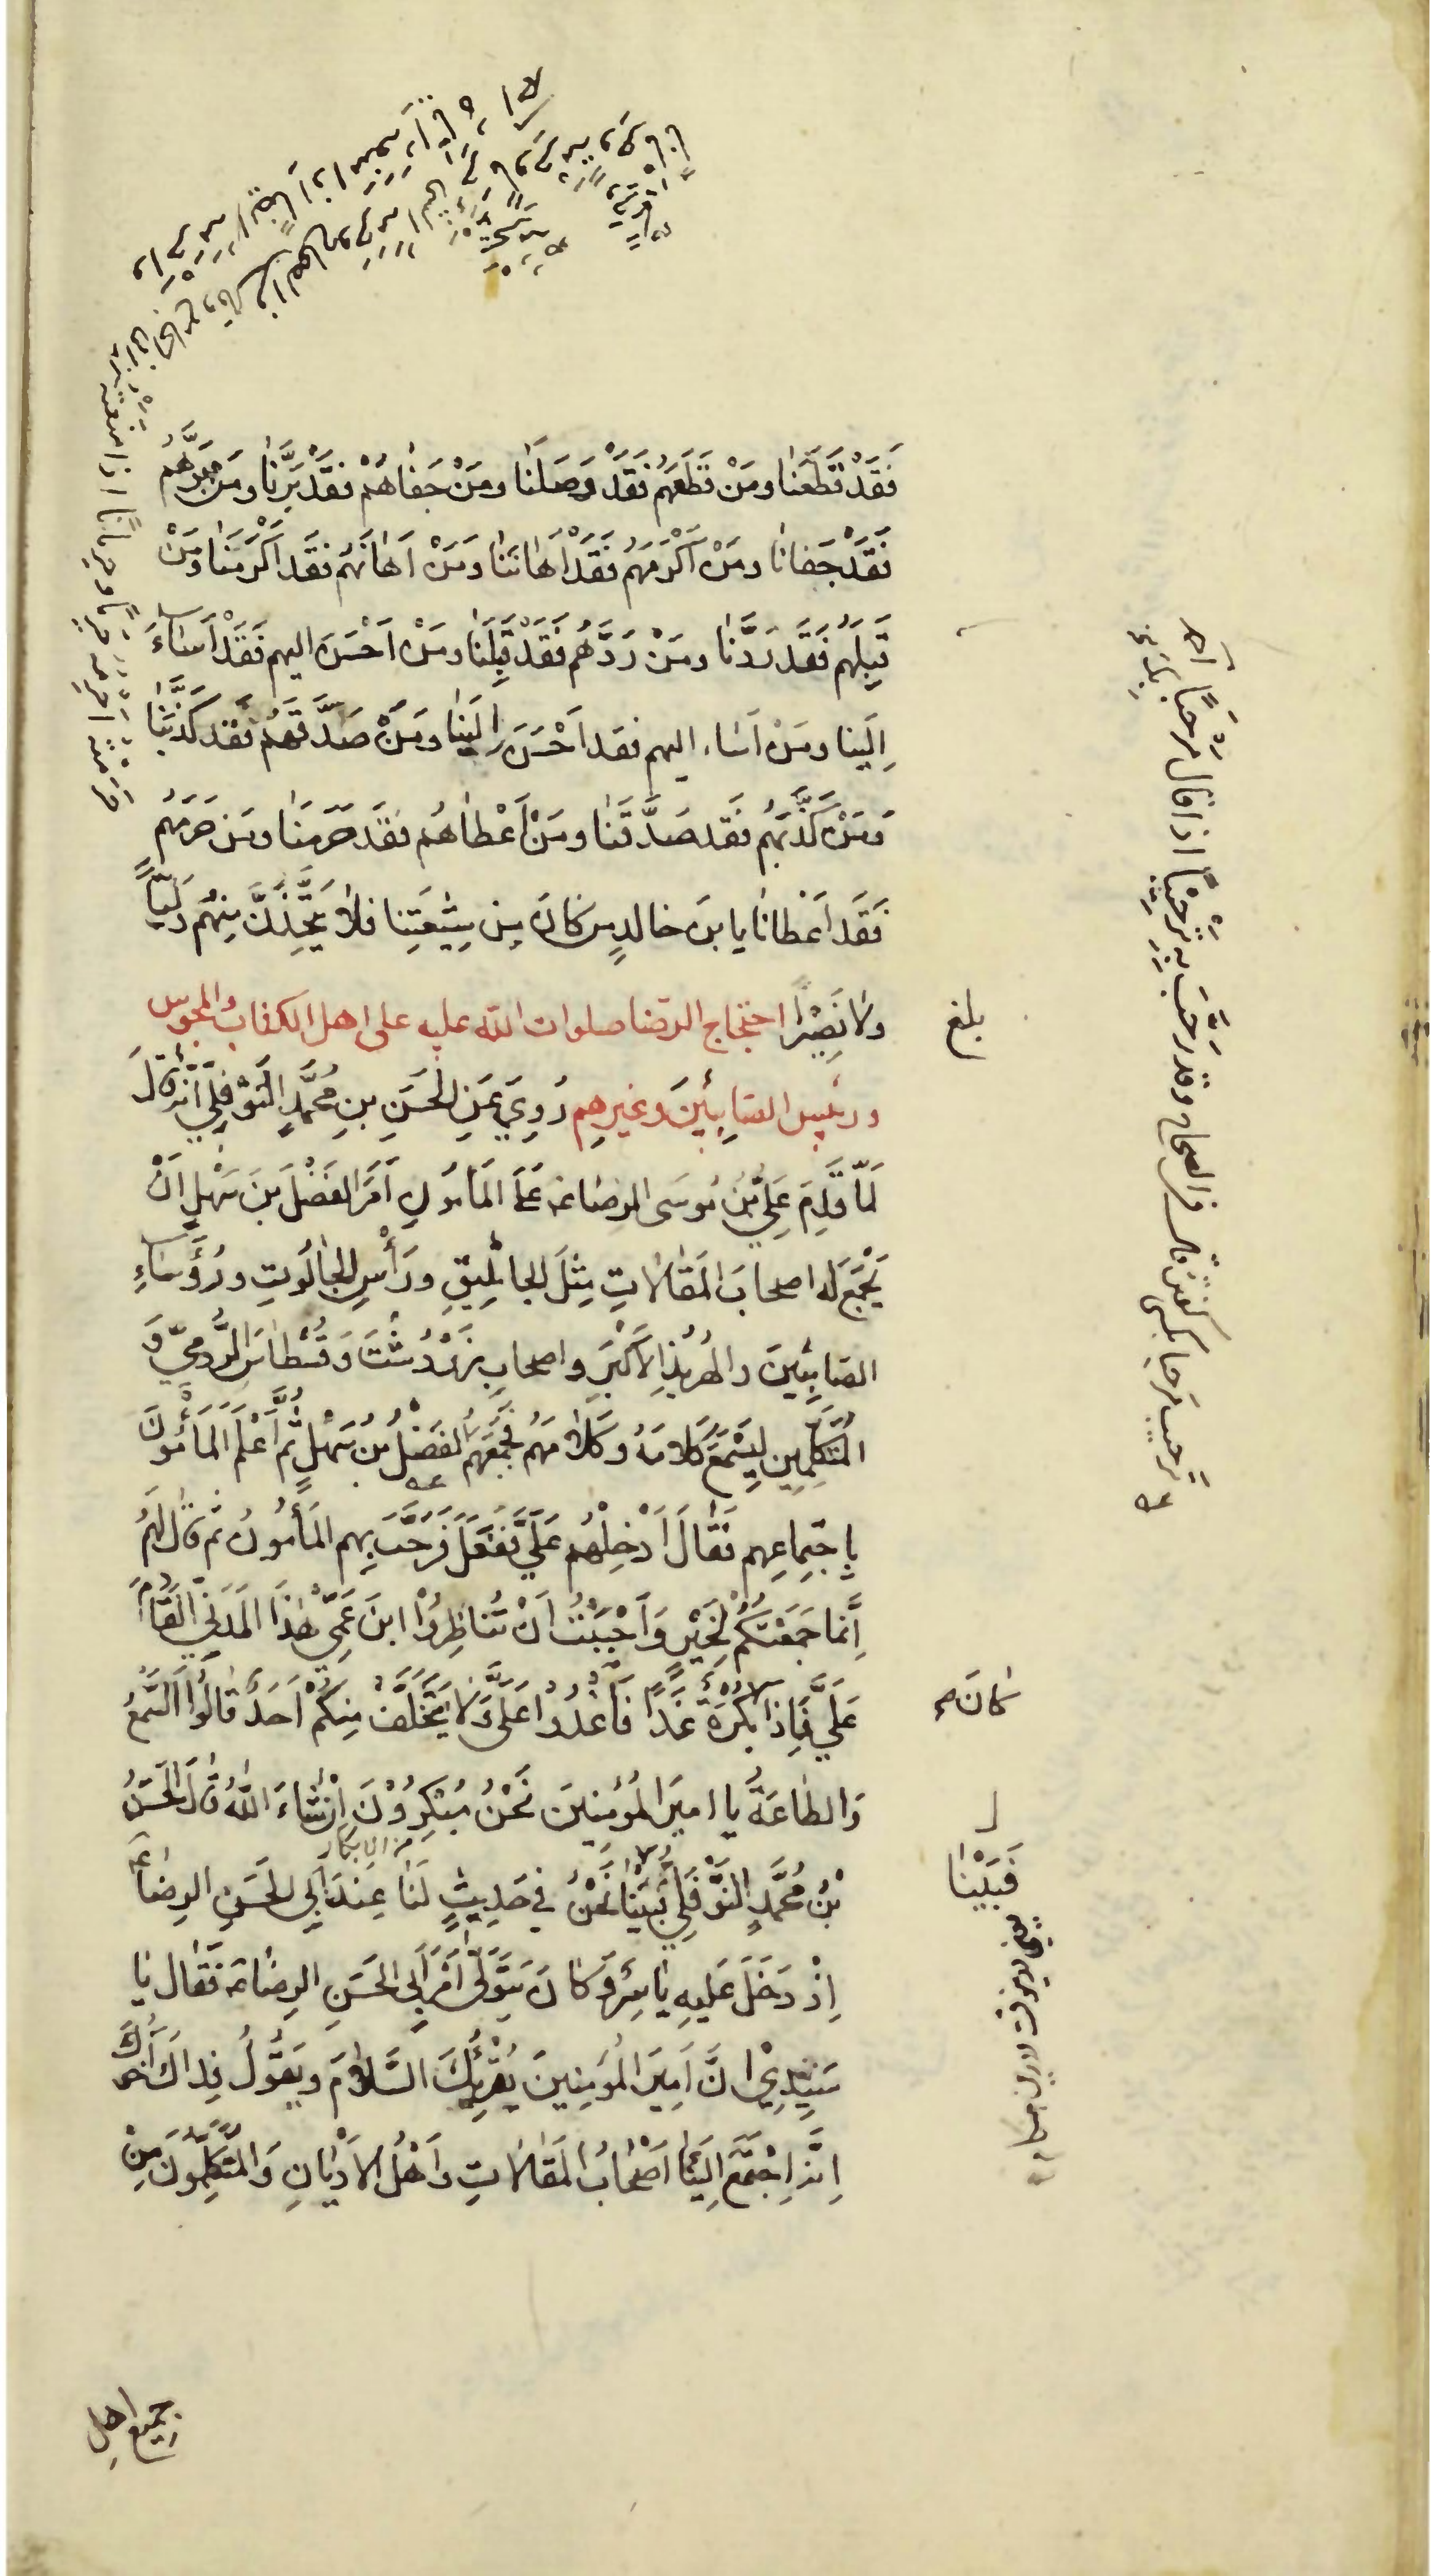 فَقَدْ قَطَعَنَا ومَنْ قَطَعَهُم فَقَدْ وَصَلَنَا ومَنْ جَفاهُمْ فقَدْ بَرَّنَا ومَن بَرَّهُم
فَقَدْ جَفانَا ومَنْ اَكْرَمَهُم فَقَدْ اَهَانَنَا ومَنْ اَهَانَهُم فَقَد اَكْرَمَنَا ومَنْ
قَبِلَهُم فَقَد رَدَّنَا ومَنْ رَدَّهُم فَقَدْ قَبِلَنَا ومَنْ اَحْسَنَ اليهم فَقَدْ اَسَاءَ
اِلَينا ومَنْ اَسَاء اليهم فقد اَحْسَنَ اِلَينَا ومَنْ صَدَّقَهُم فقد كَذَّبَنَا
ومَنْ كَذَّبَهُم فَقد صَدَّقَنَا ومَنْ اَعْطاهُم فقَد حَرَمَنَا ومَن حَرَمَهُم
فَقَد اَعْطانَا يا بنَ خالدٍ مَن كانَ مِن شِيعَتِنا فلا يَتَّخِذَنَّ مِنهُم وَلِيًّا
ولا نَصِيْرًا احتجاج الرضا صلوات الله عليه على اهل الكتاب والمجوس
ورئيس الصَابِئينَ وغيرِهِم رُوِيَ عَنِ الحَسَنِ بنِ مُحمَّدٍ النَوْفَلِيّ اَنَّهُ قالَ
لَمّا قَدِمَ عَلِيُّ بْنُ مُوسَى الرضا عه عَلَى المَامُونِ اَمَرَ الفَضْلَ بنَ سَهْلٍ اَنْ
يَجْمَعَ لَه اصحابَ المَقالاتِ مِثلَ الجاثَلِيقِ ورَأْسِ الجالُوتِ ورُؤَسَاءِ
الصَابِئِينَ والهُربُذِ الاَكْبَرِ واصحابِ زَرْدُشْتَ وَقُسْطاسَ الرُّومِيّ وَ
المُتَكَلِّمِين لِيَسْمَعَ كَلامَهُ وكَلامَهُم فَجَمَعَهُم الفَضْلُ بنُ سَهْلٍ ثُمّ اَعْلَمَ المَأمُونَ
بِاِجتِماعِهِم فَقَالَ اَدْخِلْهُم عَلَيَّ فَفَعَلَ فَرَحَّبَ بِهِم المَأمُونُ ثم قالَ لَهُم
اِنَّما جَمَعْتُكُم لِخَيْرٍ وَاَحْبَبْتُ اَنْ تُناظِرُوْا ابنَ عَمِّي هٰذَا المَدَنِيَّ القَادِمَ
عَلَيَّ فَاِذا بُكْرَةً غَدًا فَاغْدُوْا عَلَيَّ وَلا يَتَخَلَّفْ مِنكُم اَحَدٌ قالُوا السَّمْعُ
وَالطاعَةُ يا اميرَ المُؤمِنينَ نَحْنُ مُبْكِرُوْنَ اِنْ شَاءَ اللهُ قالَ الحَسَنُ
بْنُ مُحمَّدٍ النَّوْفَلِي فَبَيْنَا نَحْنُ في حَدِيثٍ لَنَا عِندَ اَبِي الحَسَنِ الرِضا عه
اِذْ دَخَلَ عَلَيهِ يَاسِرٌ وكانَ يَتَوَلّى اَمْرَ اَبِي الحَسَنِ الرِضا عه فَقال يَا
سَيِّدِيْ اِنَّ اَمِيرَ المُؤمِنِينَ يُقْرِئُكَ السَّلامَ ويَقُولُ فِداكَ اَخُوكَ
اِنَّه اِجْتَمَعَ اِلَيْنَا اَصْحَابُ المَقالاتِ وَاَهْلُ الاَدْيَانِ وَالمُتَكَلِّمُونَ مِنْ
جميع اهل
بلغ
كانَ
فَبَيْنَا
من الابكار